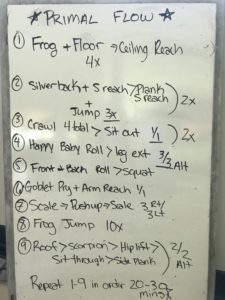 ★ PRIMAL FLOW ★
① Frog + Floor → Ceiling Reach
4x
② Silverback + S reach > Plank
S reach ) 2x
+
Jump 3x
③ Crawl 4 total > Sit out 1/1 ) 2x
④ Happy Baby Roll > leg ext 3/3 Alt
⑤ Front + Back Roll > Squat
⑥ Goblet Pry + Arm Reach 1/1
⑦ Scale → Pushup → Scale 3 Rt/
3 Lt
⑧ Frog Jump 10x
⑨ Roof > Scorpion > Hip lift >
Sit-through > Side Plank ) 2/2
Alt
Repeat 1-9 in order 20-30
mins!